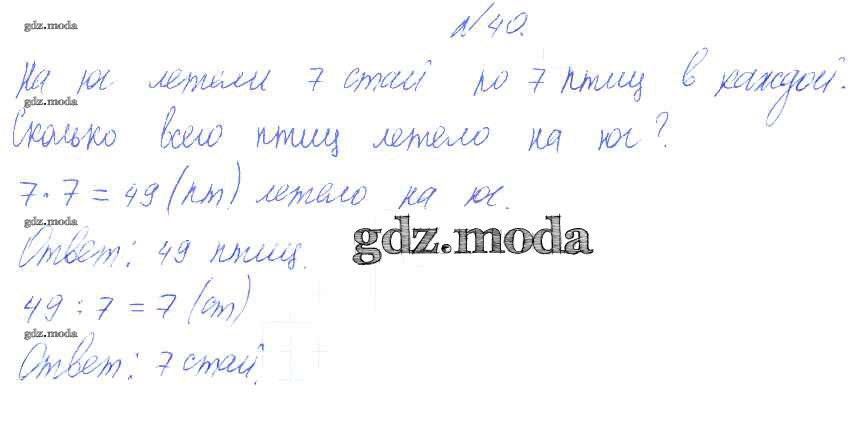 gdz.moda
№40.
На юг летели 7 стай по 7 птиц в каждой.
gdz.moda
Сколько всего птиц летело на юг?
7 · 7 = 49 (пт) летело на юг.
gdz.moda
Ответ: 49 птиц.
gdz.moda
49 : 7 = 7 (ст)
gdz.moda
Ответ: 7 стай.